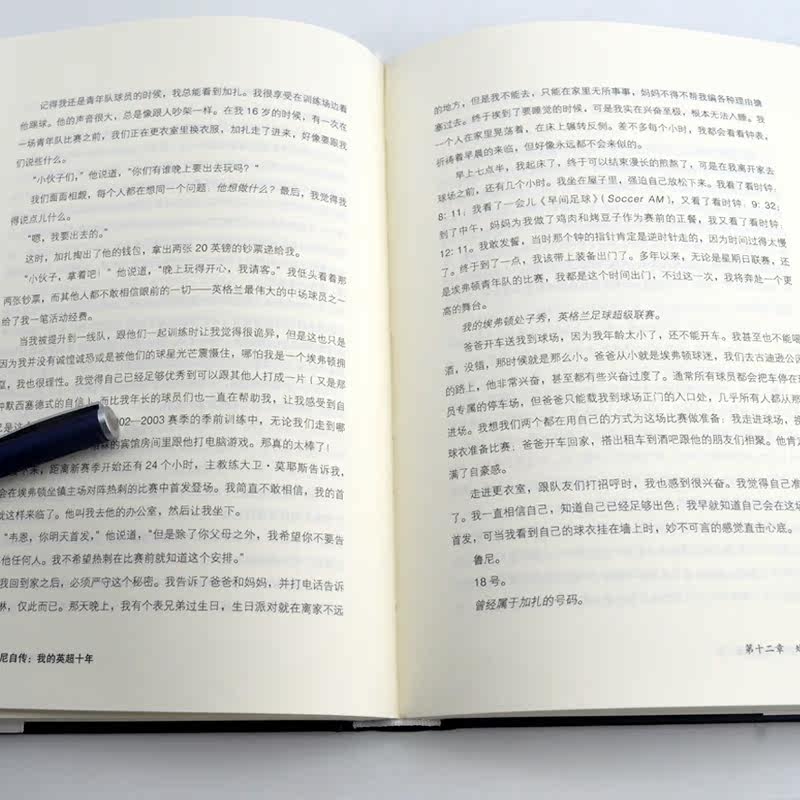 记得我还是青年队球员的时候，我总能看到加扎。我很享受在训练场边看
他踢球。他的声音很大，总是像跟人吵架一样。在我 16 岁的时候，有一次在
一场青年队比赛之前，我们正在更衣室里换衣服，加扎走了进来，好像要跟我
们说些什么。
“小伙子们，”他说道，“你们有谁晚上要出去玩吗？”
我们面面相觑，每个人都在想同一个问题：他想做什么？最后，我觉得我
得说点儿什么。
“嗯，我要出去的。”
这时，加扎掏出了他的钱包，拿出两张 20 英镑的钞票递给我。
“小伙子，拿着吧！”他说道，“晚上玩得开心，我请客。”我低头看着那
两张钞票，而其他人都不敢相信眼前的一切——英格兰最伟大的中场球员之一
给了我一笔活动经费。
当我被提升到一线队，跟他们一起训练时让我觉得很诡异，但是这也只是
因为我并没有诚惶诚恐或是被他们的球星光芒震慑住，哪怕我是一个埃弗顿拥
，我也很理性。我觉得自己已经足够优秀到可以跟其他人打成一片（又是那
种默西塞德式的自信），而比我年长的球员们也一直在帮助我，让我感受到自
己是这 02—2003 赛季的季前训练中，无论我们走到哪
的宾馆房间里跟他打电脑游戏。那真的太棒了！
来，距离新赛季开始还有 24 个小时，主教练大卫·莫耶斯告诉我，
会在埃弗顿坐镇主场对阵热刺的比赛中首发登场。我简直不敢相信，我的首
就这样来临了。他叫我去他的办公室，然后让我坐下。
“韦恩，你明天首发，”他说道，“但是除了你父母之外，我希望你不要告
其他任何人。我不希望热刺在比赛前就知道这个安排。”
我回到家之后，必须严守这个秘密。我告诉了爸爸和妈妈，并打电话告诉
琳，仅此而已。那天晚上，我有个表兄弟过生日，生日派对就在离家不远
尼自传：我的英超十年
的地方，但是我不能去，只能在家里无所事事，妈妈不得不帮我编各种理由搪
塞过去。终于挨到了要睡觉的时候，可是我实在兴奋至极，根本无法入睡。我
一个人在家里晃荡着，在床上辗转反侧。差不多每个小时，我都会看看钟表，
祈祷着早晨的来临，但好像永远都不会来似的。
早上七点半，我起床了，终于可以结束漫长的煎熬了，可是在我离开家去
球场之前，还有几个小时。我坐在屋子里，强迫自己放松下来。我看了看时钟：
8：11；我看了一会儿《早间足球》（Soccer AM），又看了看时钟：9：32；
到了中午，妈妈为我做了鸡肉和烤豆子作为赛前的正餐，我又看了看时钟：
12：11。我敢发誓，当时那个钟的指针肯定是逆时针走的，因为时间过得太慢
了。终于到了一点，我该带上装备出门了。多年以来，无论是星期日联赛，还
是埃弗顿青年队的比赛，我都是这个时间出门，不过这一次，我将奔赴一个更
高的舞台。
我的埃弗顿处子秀，英格兰足球超级联赛。
爸爸开车送我到球场，因为我年龄太小了，还不能开车。我甚至也不能喝
酒，没错，那时候就是那么小。爸爸从小就是埃弗顿球迷，我们去古迪逊公园
的路上，他非常兴奋，甚至都有些兴奋过度了。通常所有球员都会把车停在球
员专属的停车场，但爸爸只能载我到球场正门的入口处，几乎所有人都从那
进场。我想我们两个都在用自己的方式为这场比赛做准备：我走进球场，换
球衣准备比赛；爸爸开车回家，搭出租车到酒吧跟他的朋友们相聚。他肯定
满了自豪感。
走进更衣室，跟队友们打招呼时，我也感到很兴奋。我觉得自己准
了。我一直相信自己，知道自己已经足够出色；我早就知道自己会在这场
首发，可当我看到自己的球衣挂在墙上时，妙不可言的感觉直击心底。
鲁尼。
18 号。
曾经属于加扎的号码。
第十二章